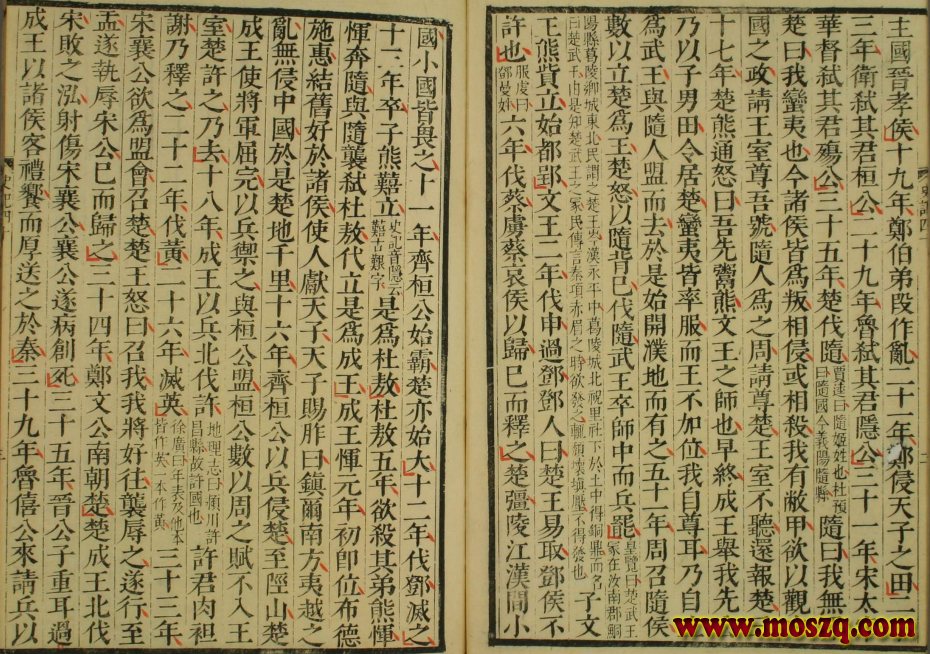 主國晉孝侯十九年鄭伯弟段作亂二十一年鄭侵天子之田二
三年衛弑其君桓公二十九年魯弑其君隱公三十一年宋太
華督弑其君殤公三十五年楚伐隨賈逵曰隨姬姓也杜預曰隨國今義陽隨縣隨曰我無
楚曰我蠻夷也今諸侯皆爲叛相侵或相殺我有敝甲欲以觀
國之政請王室尊吾號隨人爲之周請尊楚王室不聽還報楚
十七年楚熊通怒曰吾先鬻熊文王之師也早終成王舉我先
乃以子男田令居楚蠻夷皆率服而王不加位我自尊耳乃自
爲武王與隨人盟而去於是始開濮地而有之五十一年周召隨侯
數以立楚爲王楚怒以隨背己伐隨武王卒師中而兵罷皇覽曰楚武王冢在汝南郡鮦
陽縣葛陵鄉城東北民謂之楚王岑漢永平中葛陵城北祝里社下於土中得銅鼎而名曰楚武王由是知楚武王之冢民傳言秦項赤眉之時欲發之輒頹壞填壓不得發也子文
王熊貲立始都郢文王二年伐申過鄧鄧人曰楚王易取鄧侯不
許也服虔曰鄧曼姓六年伐蔡虜蔡哀侯以歸已而釋之楚彊陵江漢間小
國小國皆畏之十一年齊桓公始霸楚亦始大十二年伐鄧滅之
十三年卒子熊囏立史記音隱云囏古艱字是爲杜敖杜敖五年欲殺其弟熊惲
惲奔隨與隨襲弑杜敖代立是爲成王成王惲元年初即位布德
施惠結舊好於諸侯使人獻天子天子賜胙曰鎮爾南方夷越之
亂無侵中國於是楚地千里十六年齊桓公以兵侵楚至陘山楚
成王使將軍屈完以兵禦之與桓公盟桓公數以周之賦不入王
室楚許之乃去十八年成王以兵北伐許地理志曰潁川許昌縣故許國也許君肉袒
謝乃釋之二十二年伐黃二十六年滅英徐廣曰年表及他本皆作英一本作黃三十三年
宋襄公欲爲盟會召楚楚王怒曰召我我將好往襲辱之遂行至
盂遂執辱宋公已而歸之三十四年鄭文公南朝楚楚成王北伐
宋敗之泓射傷宋襄公襄公遂病創死三十五年晉公子重耳過
成王以諸侯客禮饗而厚送之於秦三十九年魯僖公來請兵以
www.moszq.com